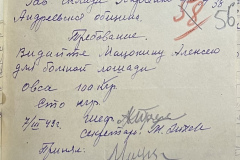 58 56
Андреевой общины.
Требование.
Выдайте Мацокину Алексею
для больной лошади
Овса 100 кгр.
Сто кгр.
7/III 43 г.
Секретарь
Принял